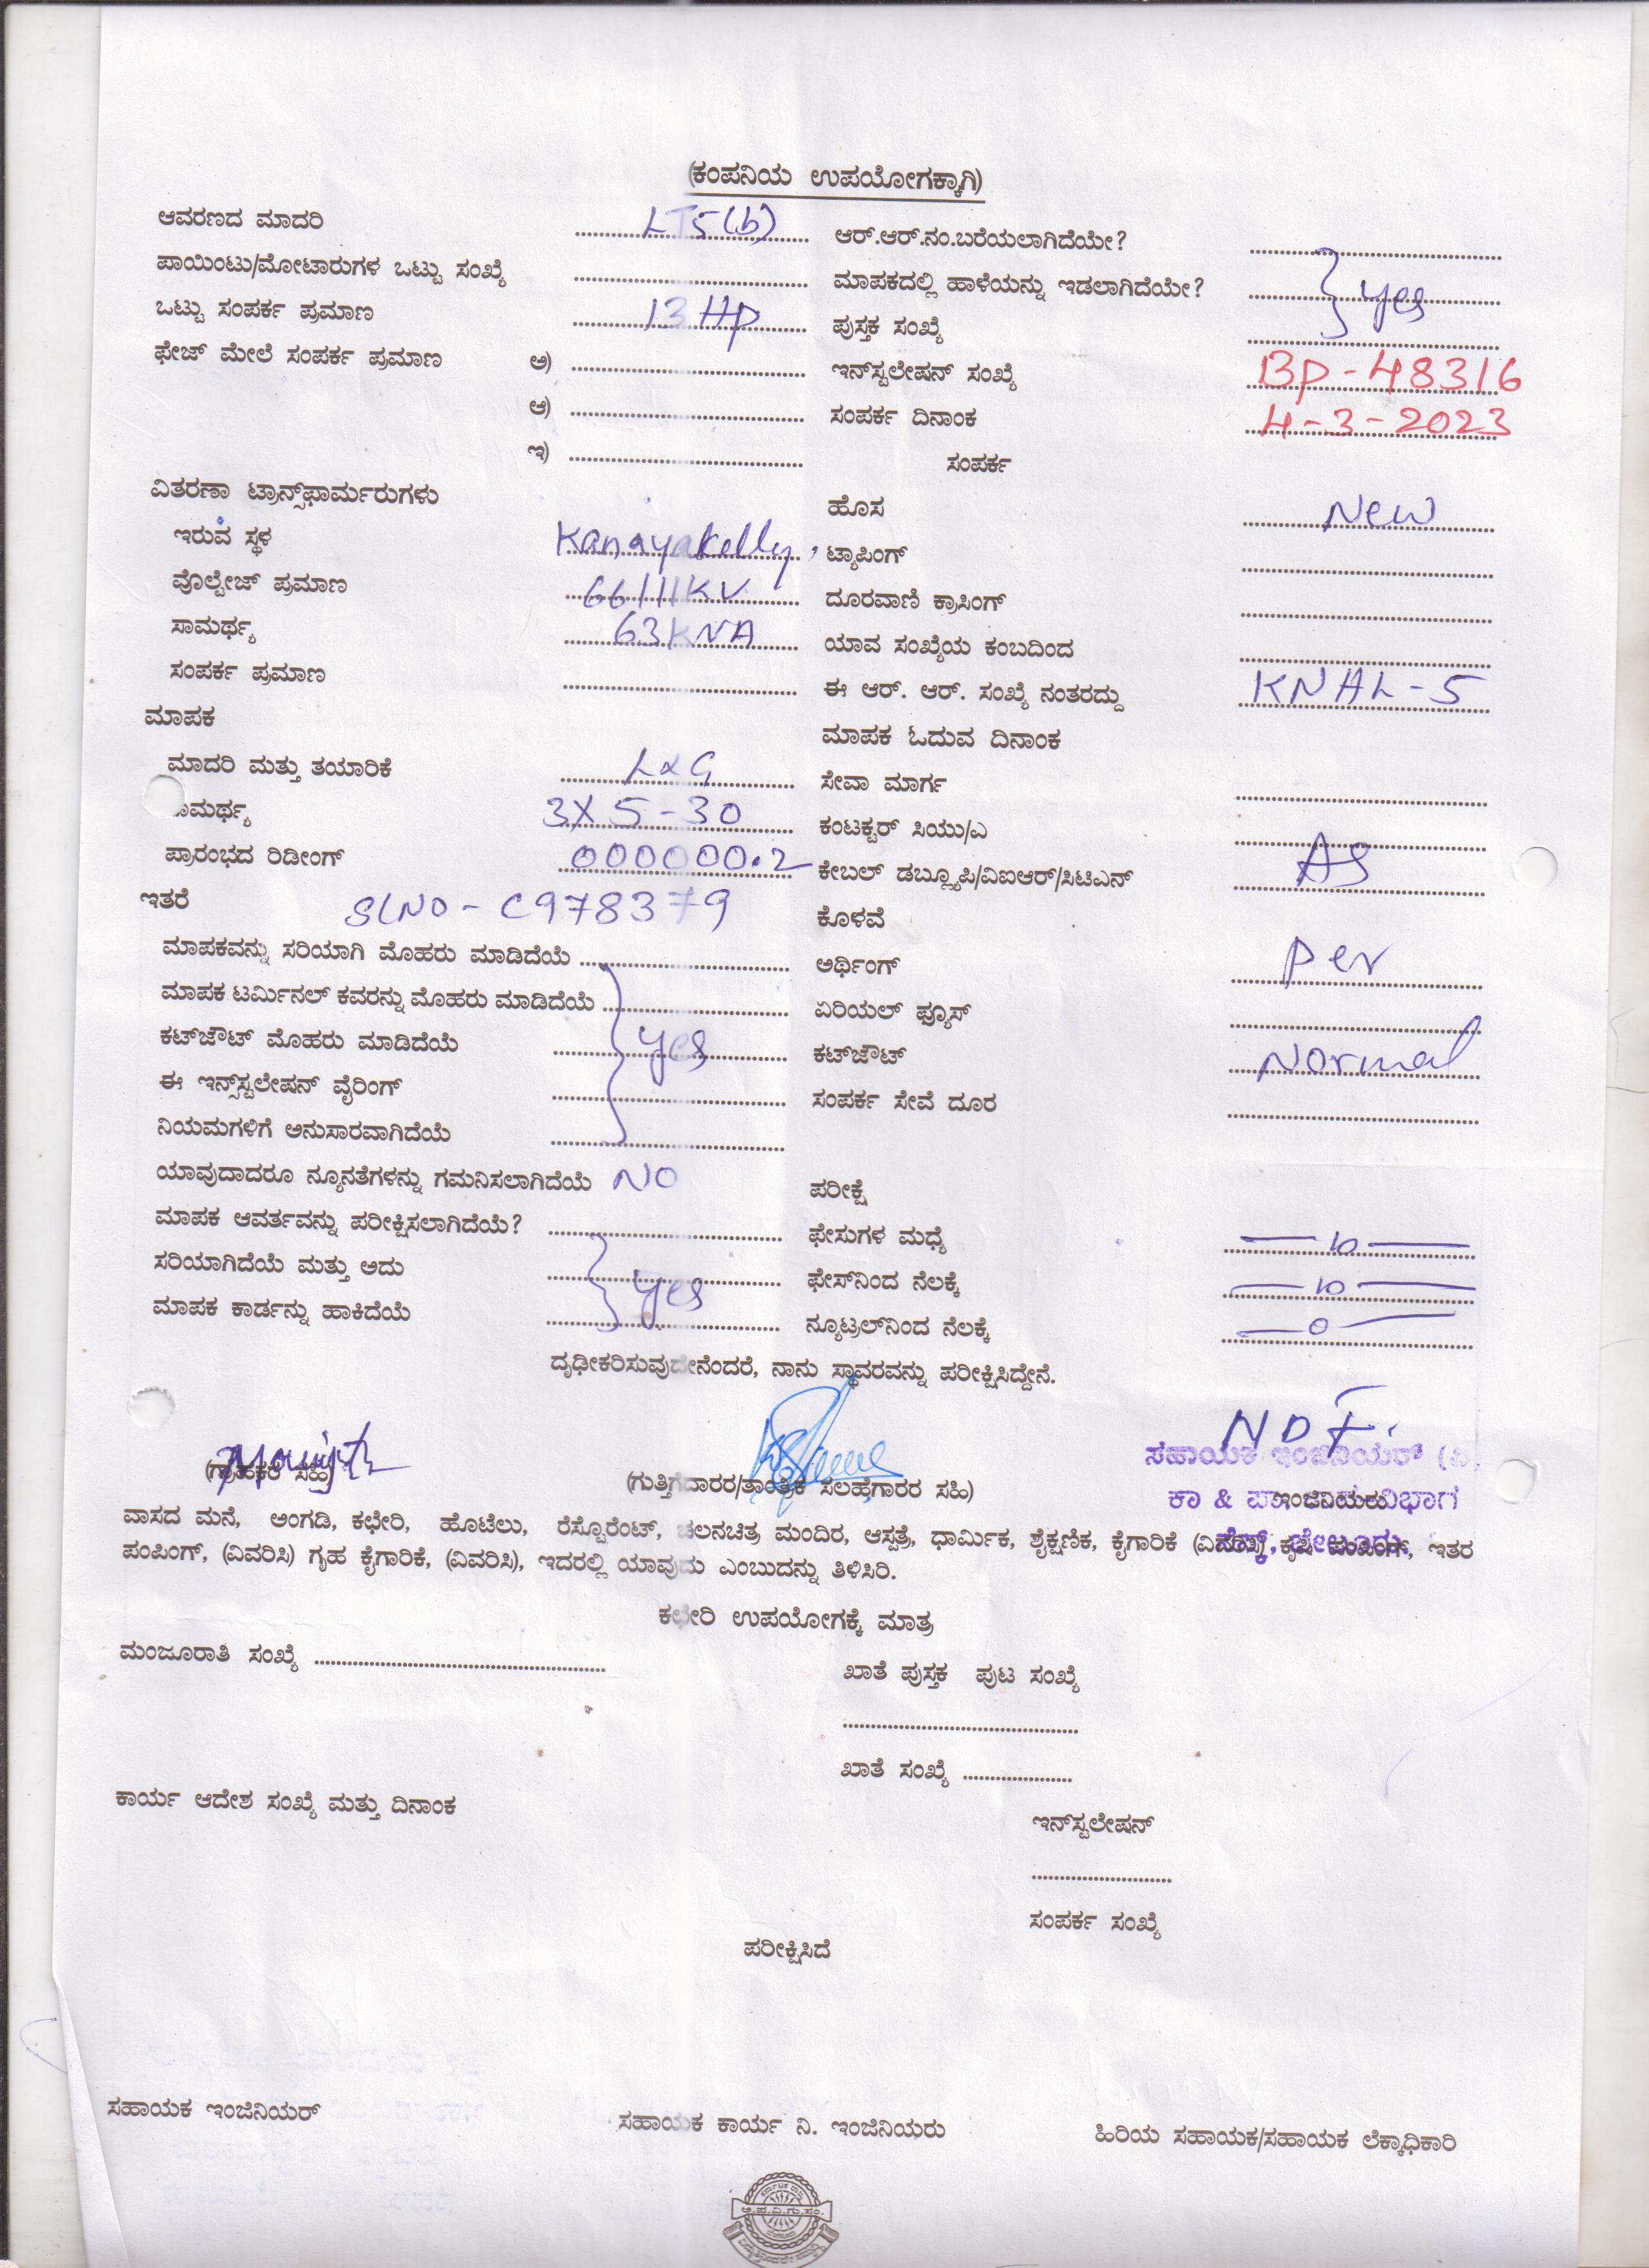 (ಕಂಪನಿಯ ಉಪಯೋಗಕ್ಕಾಗಿ)
ಆವರಣದ ಮಾದರಿ LT5(b)
ಪಾಯಿಂಟು/ಮೋಟಾರುಗಳ ಒಟ್ಟು ಸಂಖ್ಯೆ
ಒಟ್ಟು ಸಂಪರ್ಕ ಪ್ರಮಾಣ 13 HP
ಫೇಜ್ ಮೇಲೆ ಸಂಪರ್ಕ ಪ್ರಮಾಣ ಅ)
ಆ)
ಇ)
ವಿತರಣಾ ಟ್ರಾನ್ಸ್‌ಫಾರ್ಮರುಗಳು
ಇರುವ ಸ್ಥಳ Kanayakelly
ವೊಲ್ಟೇಜ್ ಪ್ರಮಾಣ 66/11KV
ಸಾಮರ್ಥ್ಯ 63KVA
ಸಂಪರ್ಕ ಪ್ರಮಾಣ
ಮಾಪಕ
ಮಾದರಿ ಮತ್ತು ತಯಾರಿಕೆ L&G
ಸಾಮರ್ಥ್ಯ 3X5-30
ಪ್ರಾರಂಭದ ರಿಡೀಂಗ್ 000000.2
ಇತರೆ SLNO - C978379
ಮಾಪಕವನ್ನು ಸರಿಯಾಗಿ ಮೊಹರು ಮಾಡಿದೆಯೆ
ಮಾಪಕ ಟರ್ಮಿನಲ್ ಕವರನ್ನು ಮೊಹರು ಮಾಡಿದೆಯೆ
ಕಟ್‌ಜೌಟ್ ಮೊಹರು ಮಾಡಿದೆಯೆ yes
ಈ ಇನ್ಸ್‌ಸ್ಟಲೇಷನ್ ವೈರಿಂಗ್
ನಿಯಮಗಳಿಗೆ ಅನುಸಾರವಾಗಿದೆಯೆ
ಯಾವುದಾದರೂ ನ್ಯೂನತೆಗಳನ್ನು ಗಮನಿಸಲಾಗಿದೆಯೆ NO
ಮಾಪಕ ಆವರ್ತವನ್ನು ಪರೀಕ್ಷಿಸಲಾಗಿದೆಯೆ?
ಸರಿಯಾಗಿದೆಯೆ ಮತ್ತು ಅದು yes
ಮಾಪಕ ಕಾರ್ಡನ್ನು ಹಾಕಿದೆಯೆ
ಆರ್.ಆರ್.ನಂ.ಬರೆಯಲಾಗಿದೆಯೇ?
ಮಾಪಕದಲ್ಲಿ ಹಾಳೆಯನ್ನು ಇಡಲಾಗಿದೆಯೇ? yes
ಪುಸ್ತಕ ಸಂಖ್ಯೆ
ಇನ್‌ಸ್ಟಲೇಷನ್ ಸಂಖ್ಯೆ BP-48316
ಸಂಪರ್ಕ ದಿನಾಂಕ 4-3-2023
ಸಂಪರ್ಕ
ಹೊಸ New
ಟ್ಯಾಪಿಂಗ್
ದೂರವಾಣಿ ಕ್ರಾಸಿಂಗ್
ಯಾವ ಸಂಖ್ಯೆಯ ಕಂಬದಿಂದ
ಈ ಆರ್. ಆರ್. ಸಂಖ್ಯೆ ನಂತರದ್ದು KNAL-5
ಮಾಪಕ ಓದುವ ದಿನಾಂಕ
ಸೇವಾ ಮಾರ್ಗ
ಕಂಟಕ್ಟರ್ ಸಿಯು/ಎ
ಕೇಬಲ್ ಡಬ್ಲ್ಯೂಪಿ/ವಿಐಆರ್/ಸಿಟಿಎನ್ AS
ಕೊಳವೆ
ಅರ್ಥಿಂಗ್ per
ಏರಿಯಲ್ ಫ್ಯೂಸ್
ಕಟ್‌ಜೌಟ್ Normal
ಸಂಪರ್ಕ ಸೇವೆ ದೂರ
ಪರೀಕ್ಷೆ
ಫೇಸುಗಳ ಮಧ್ಯೆ — 10 —
ಫೇಸ್‌ನಿಂದ ನೆಲಕ್ಕೆ — 10 —
ನ್ಯೂಟ್ರಲ್‌ನಿಂದ ನೆಲಕ್ಕೆ — 0 —
ದೃಢೀಕರಿಸುವುದೇನೆಂದರೆ, ನಾನು ಸ್ಥಾವರವನ್ನು ಪರೀಕ್ಷಿಸಿದ್ದೇನೆ.
(ಗ್ರಾಹಕರ ಸಹಿ)
(ಗುತ್ತಿಗೆದಾರರ/ತಾಂತ್ರಿಕ ಸಲಹೆಗಾರರ ಸಹಿ)
ಸಹಾಯಕ ಇಂಜಿನಿಯರ್ (ವಿ)
ಇಂಜಿನಿಯರು
ವಾಸದ ಮನೆ, ಅಂಗಡಿ, ಕಛೇರಿ, ಹೊಟೆಲು, ರೆಸ್ಟೊರೆಂಟ್, ಚಲನಚಿತ್ರ ಮಂದಿರ, ಆಸ್ಪತ್ರೆ, ಧಾರ್ಮಿಕ, ಶೈಕ್ಷಣಿಕ, ಕೈಗಾರಿಕೆ (ವಿವರಿಸಿ) ಕೃಷಿ ಪಂಪಿಂಗ್, ಇತರ
ಪಂಪಿಂಗ್, (ವಿವರಿಸಿ) ಗೃಹ ಕೈಗಾರಿಕೆ, (ವಿವರಿಸಿ), ಇದರಲ್ಲಿ ಯಾವುದು ಎಂಬುದನ್ನು ತಿಳಿಸಿರಿ.
ಕಛೇರಿ ಉಪಯೋಗಕ್ಕೆ ಮಾತ್ರ
ಮಂಜೂರಾತಿ ಸಂಖ್ಯೆ
ಖಾತೆ ಪುಸ್ತಕ ಪುಟ ಸಂಖ್ಯೆ
ಖಾತೆ ಸಂಖ್ಯೆ
ಕಾರ್ಯ ಆದೇಶ ಸಂಖ್ಯೆ ಮತ್ತು ದಿನಾಂಕ
ಇನ್‌ಸ್ಟಲೇಷನ್
ಸಂಪರ್ಕ ಸಂಖ್ಯೆ
ಪರೀಕ್ಷಿಸಿದೆ
ಸಹಾಯಕ ಇಂಜಿನಿಯರ್
ಸಹಾಯಕ ಕಾರ್ಯ ನಿ. ಇಂಜಿನಿಯರು
ಹಿರಿಯ ಸಹಾಯಕ/ಸಹಾಯಕ ಲೆಕ್ಕಾಧಿಕಾರಿ